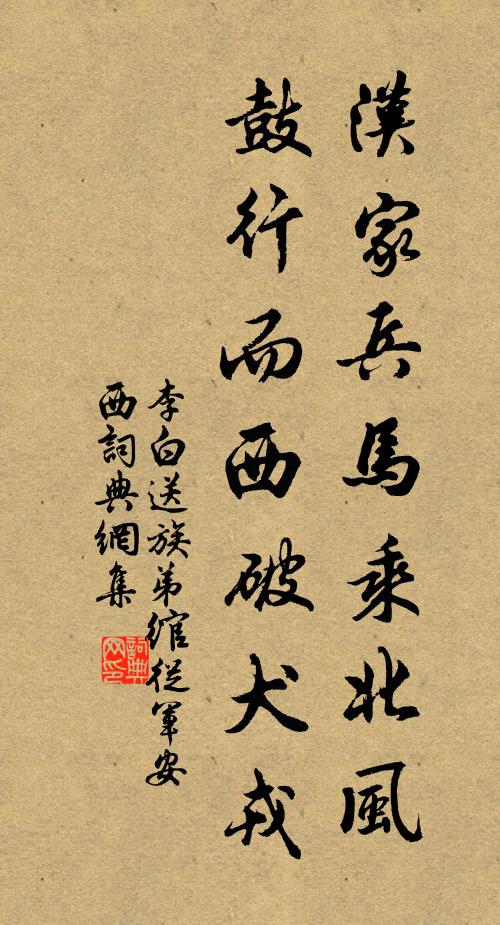 漢家兵馬乘北風
鼓行而西破犬戎
李白送族弟綰從軍安
西詞典網集
詞典
网印